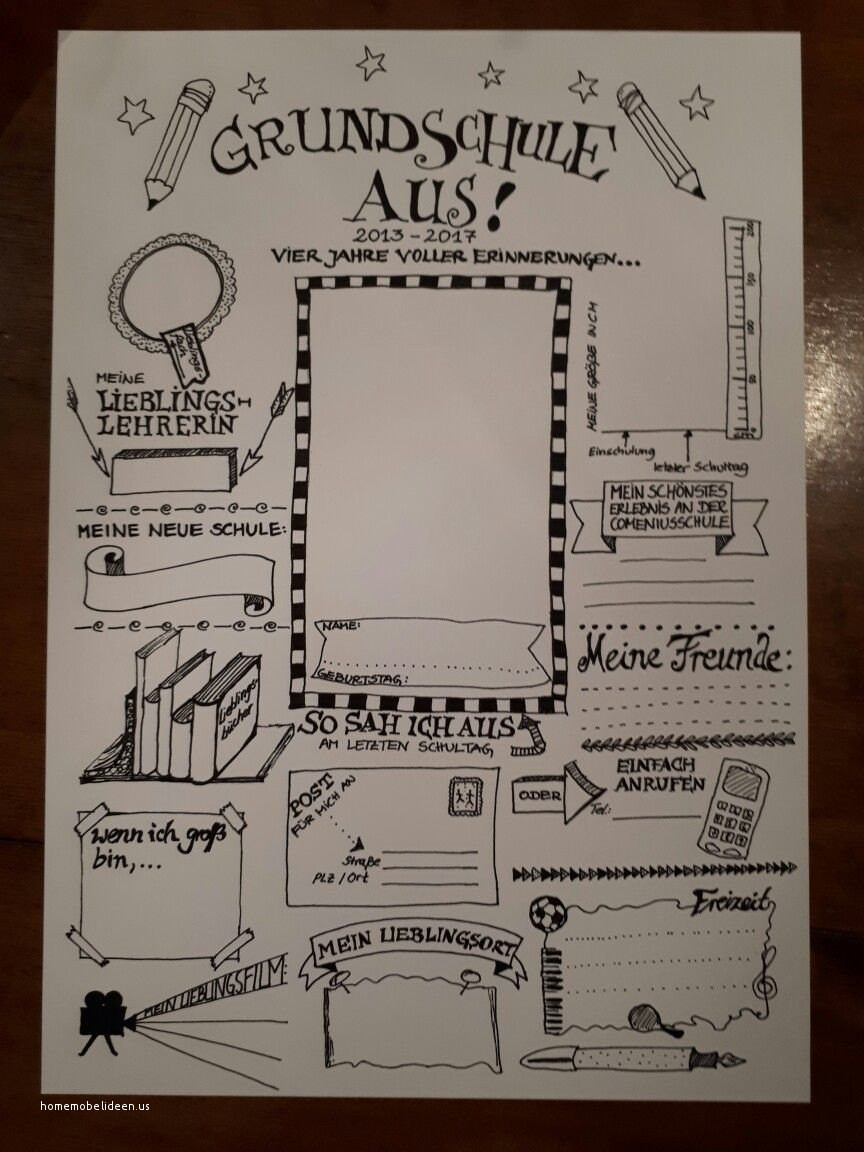 GRUNDSCHULE
AUS!
2013-2017
VIER JAHRE VOLLER ERINNERUNGEN...
MEINE
LIEBLINGS-
LEHRERIN
MEINE NEUE SCHULE:
Lieblings-
bücher
wenn ich groß
bin,...
MEIN LIEBLINGSFILM:
NAME:
GEBURTSTAG:
SO SAH ICH AUS
AM LETZTEN SCHULTAG
POST
FÜR MICH AN
Straße
PLZ/Ort
MEIN LIEBLINGSORT
MEINE GRÖßE IN CM
200
150
100
50
0
Einschulung
letzter Schultag
MEIN SCHÖNSTES
ERLEBNIS AN DER
COMENIUSSCHULE
Meine Freunde:
ODER
EINFACH
ANRUFEN
Tel:
Freizeit
homemobelideen.us